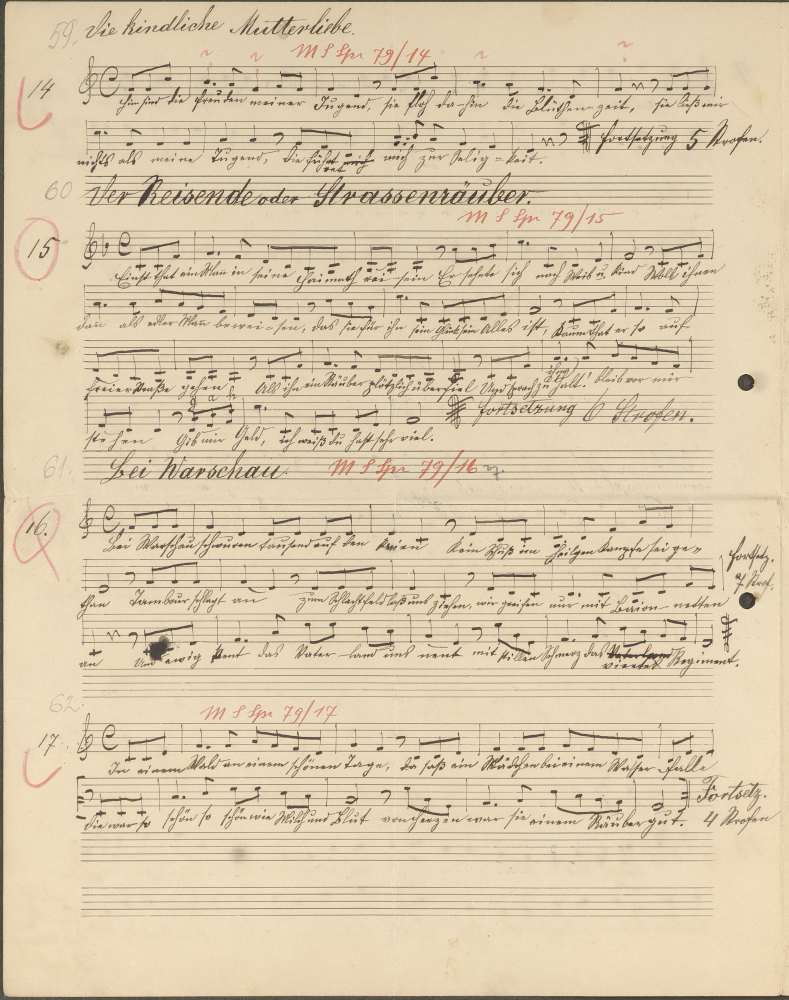 59. Die kindliche Mutterliebe.
M S Spr 79/14
14
Hin sind die Freuden meiner Jugend, sie floh dahin die Blüthenzeit, sie ließ mir
nichts als meine Tugend, die führet mich zur Selig=keit. Fortsetzung 5 Strofen.
60 Der Reisende oder Strassenräuber.
M S Spr 79/15
15
Einst that ein Mann in seine Heimath rei=sein Er sehnte sich nach Weib u. Kind Wollt ihnen
dan als edler Mann bewei=sen, das sie für ihn sein Glück sein Alles ist, kaum that er so auf
freier Straße gehen Als ihn ein Räuber plötzlich überfiel Und sprach zu ihm Halt! bleib vor mir
stehen Gib mir Geld, ich weiß du hast sehr viel. Fortsetzung 6 Strofen.
61. Bei Warschau. M S Spr 79/16
16.
Bei Warschau schwuren tausend auf den Knien Kein Schuß im heilgen Kampfe sei ge=
than Tambour schlagt an zum Schlachtfeld laßt uns ziehen, wir greifen nur mit Baion=netten Fortsetz. 7 Strof.
an Und ewig kent das Vater=land uns nent mit stillen Schmerz das viertes Regiment.
62.
M S Spr 79/17
17.
In einem Wald an einem schönen Tage, da saß ein Mädchen bei einem Wasser=falle
Sie war so schön so schön wie Milch und Blut von Herzen war sie einem Räuber gut. Fortsetz. 4 Strofen